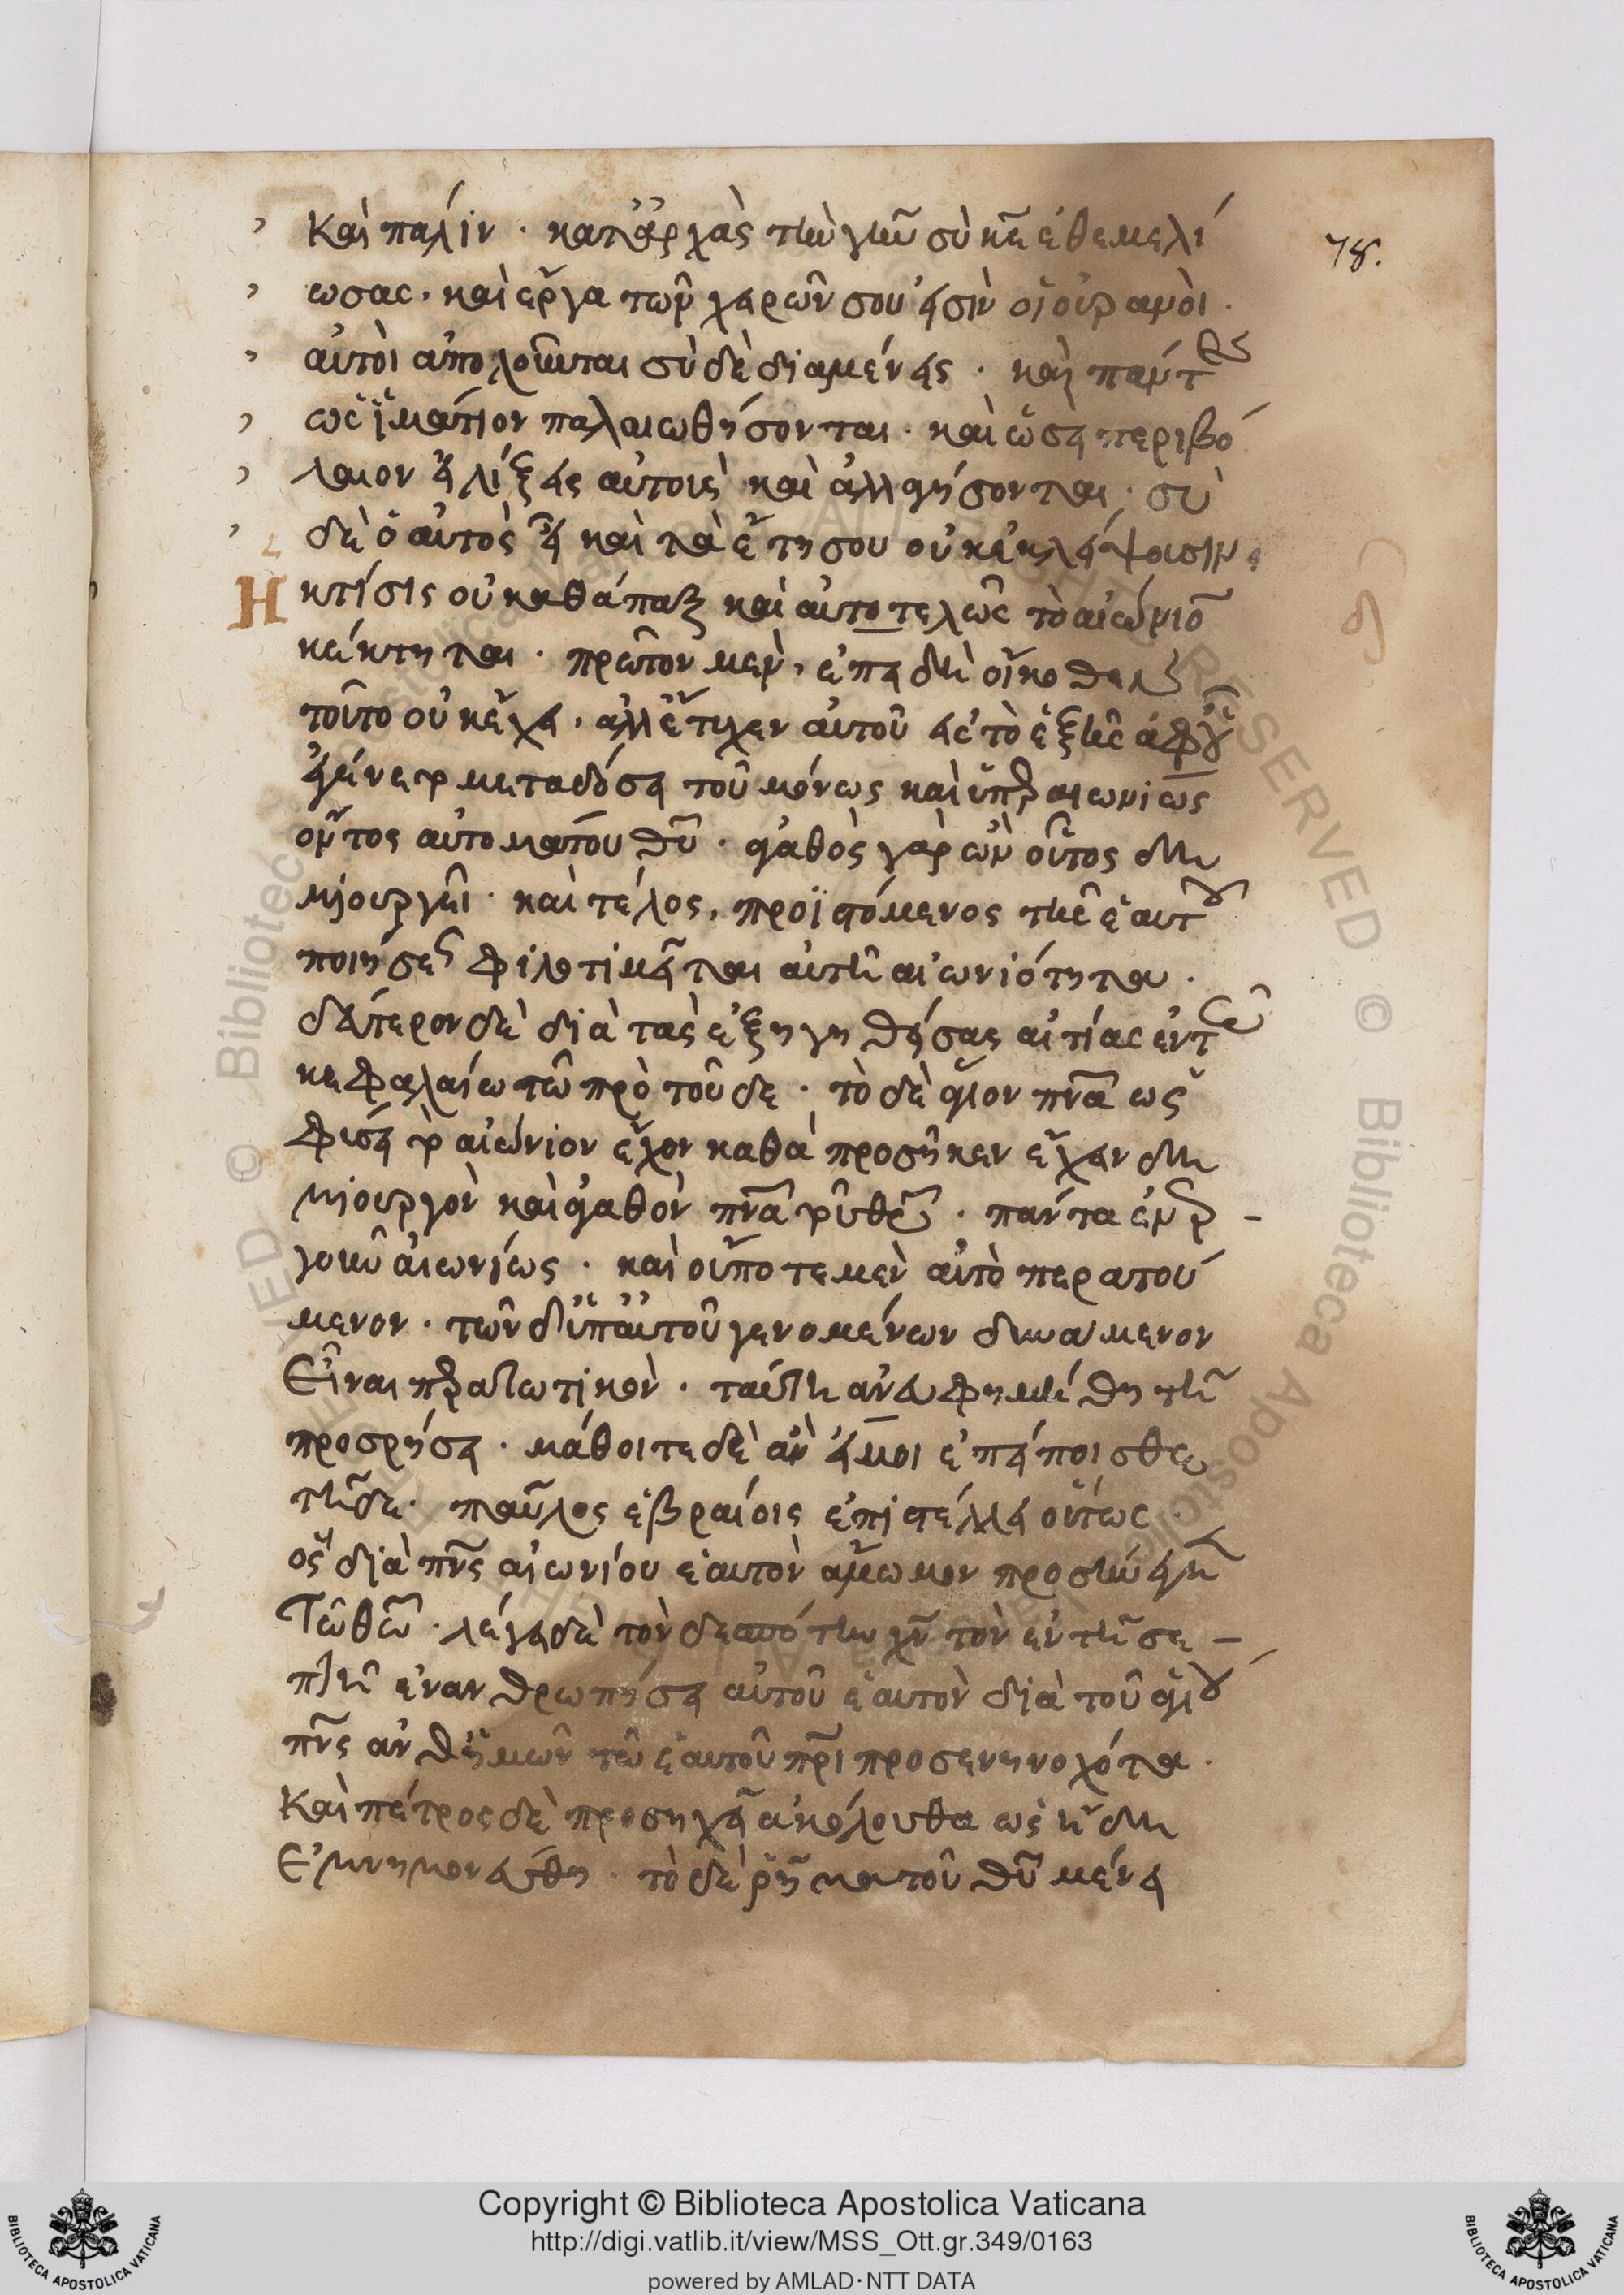 Καὶ πάλιν · κατἀρχὰς τὴν γῆν σὺ κε ἐθεμελί
78.
ωσας, καὶ ἔργα τῶν χειρῶν σου εἰσὶν οἱ οὐρανοὶ ·
αὐτοὶ ἀπολοῦνται σὺ δὲ διαμένεις · καὶ πάντες
ὡς ἱμάτιον παλαιωθήσονται · καὶ ὡσεὶ περιβό
λαιον εἱλίξεις αὐτοὺς καὶ ἀλλαγήσονται · σὺ
δὲ ὁ αὐτὸς εἶ καὶ τὰ ἔτη σου οὐκ ἐκλείψουσιν ·
Η κτίσις οὐ καθάπαξ καὶ αὐτοτελῶς τὸ αἰώνιον
κέκτηται · πρῶτον μὲν, ἐπειδὴ οἴκοθεν
τοῦτο οὐκ εἶχει, ἀλλ' ἔτυχεν αὐτοῦ εἰς τὸ ἑξῆς ἀφ' οὗ
γέγονεν μεταδόσει τοῦ μόνως καὶ ὑπεραιωνίως
ὄντος αὐτομάτου θυ · ἀγαθὸς γὰρ ὢν οὗτος δη
μιουργεῖ · καὶ τέλος, προϊστάμενος τῆς ἑαυτοῦ
ποιήσεως φιλοτιμεῖται αὐτῇ αἰωνιότητα ·
δεύτερον δὲ διὰ τὰς ἐξηγηθείσας αἰτίας ἐν τῷ
κεφαλαίω τῶ πρὸ τοῦδε · τὸ δὲ ἅγιον πνα ὡς
φύσει τὸ αἰώνιον ἔχον καθὰ προσῆκεν ἔχειν δη
μιουργὸν καὶ ἀγαθὸν πνα τοῦ θυ · πάντα ἐνερ -
γοῦν αἰωνίως · καὶ οὔποτε μὲν αὐτὸ περατού
μενον · τῶν δ' ὑπ' αὐτοῦ γενομένων δυνάμενον
Εἶναι περατωτικὸν · ταύτῃ ἀνευφημήθη τῇ
προσρήσει · μάθοιτε δὲ ἂν εἴ μοι ἐπείποισθε
τῇδε · παῦλος ἑβραίοις ἐπιστέλλει οὕτως ·
ὃς διὰ πνς αἰωνίου ἑαυτὸν ἄμωμον προσήνεγκεν
Τῶ θῶ · λέγει δὲ τὸν δεσπότην χν τὸν ἐν τῇ σε -
πτῇ ἐνανθρωπήσει αὐτοῦ ἑαυτὸν διὰ τοῦ ἁγίου
πνς ἀνθ' ἡμῶν τῶ ἑαυτοῦ πρι προσενηνοχότα ·
Καὶ πέτρος δὲ προσηχεῖ ἀκόλουθα ὡς ἤδη
Ἐμνημονεύθη · τὸ δὲ ῥῆμα τοῦ θυ μένει
Copyright © Biblioteca Apostolica Vaticana
http://digi.vatlib.it/view/MSS_Ott.gr.349/0163
powered by AMLAD·NTT DATA
BIBLIOTECA APOSTOLICA VATICANA
BIBLIOTECA APOSTOLICA VATICANA